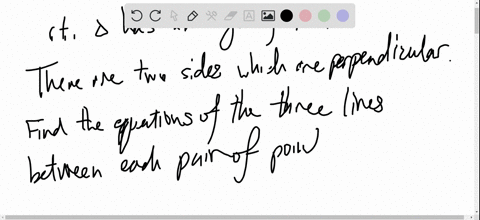 rt. Δ has
There are two sides which are perpendicular.
Find the equations of the three lines
between each pair of poin